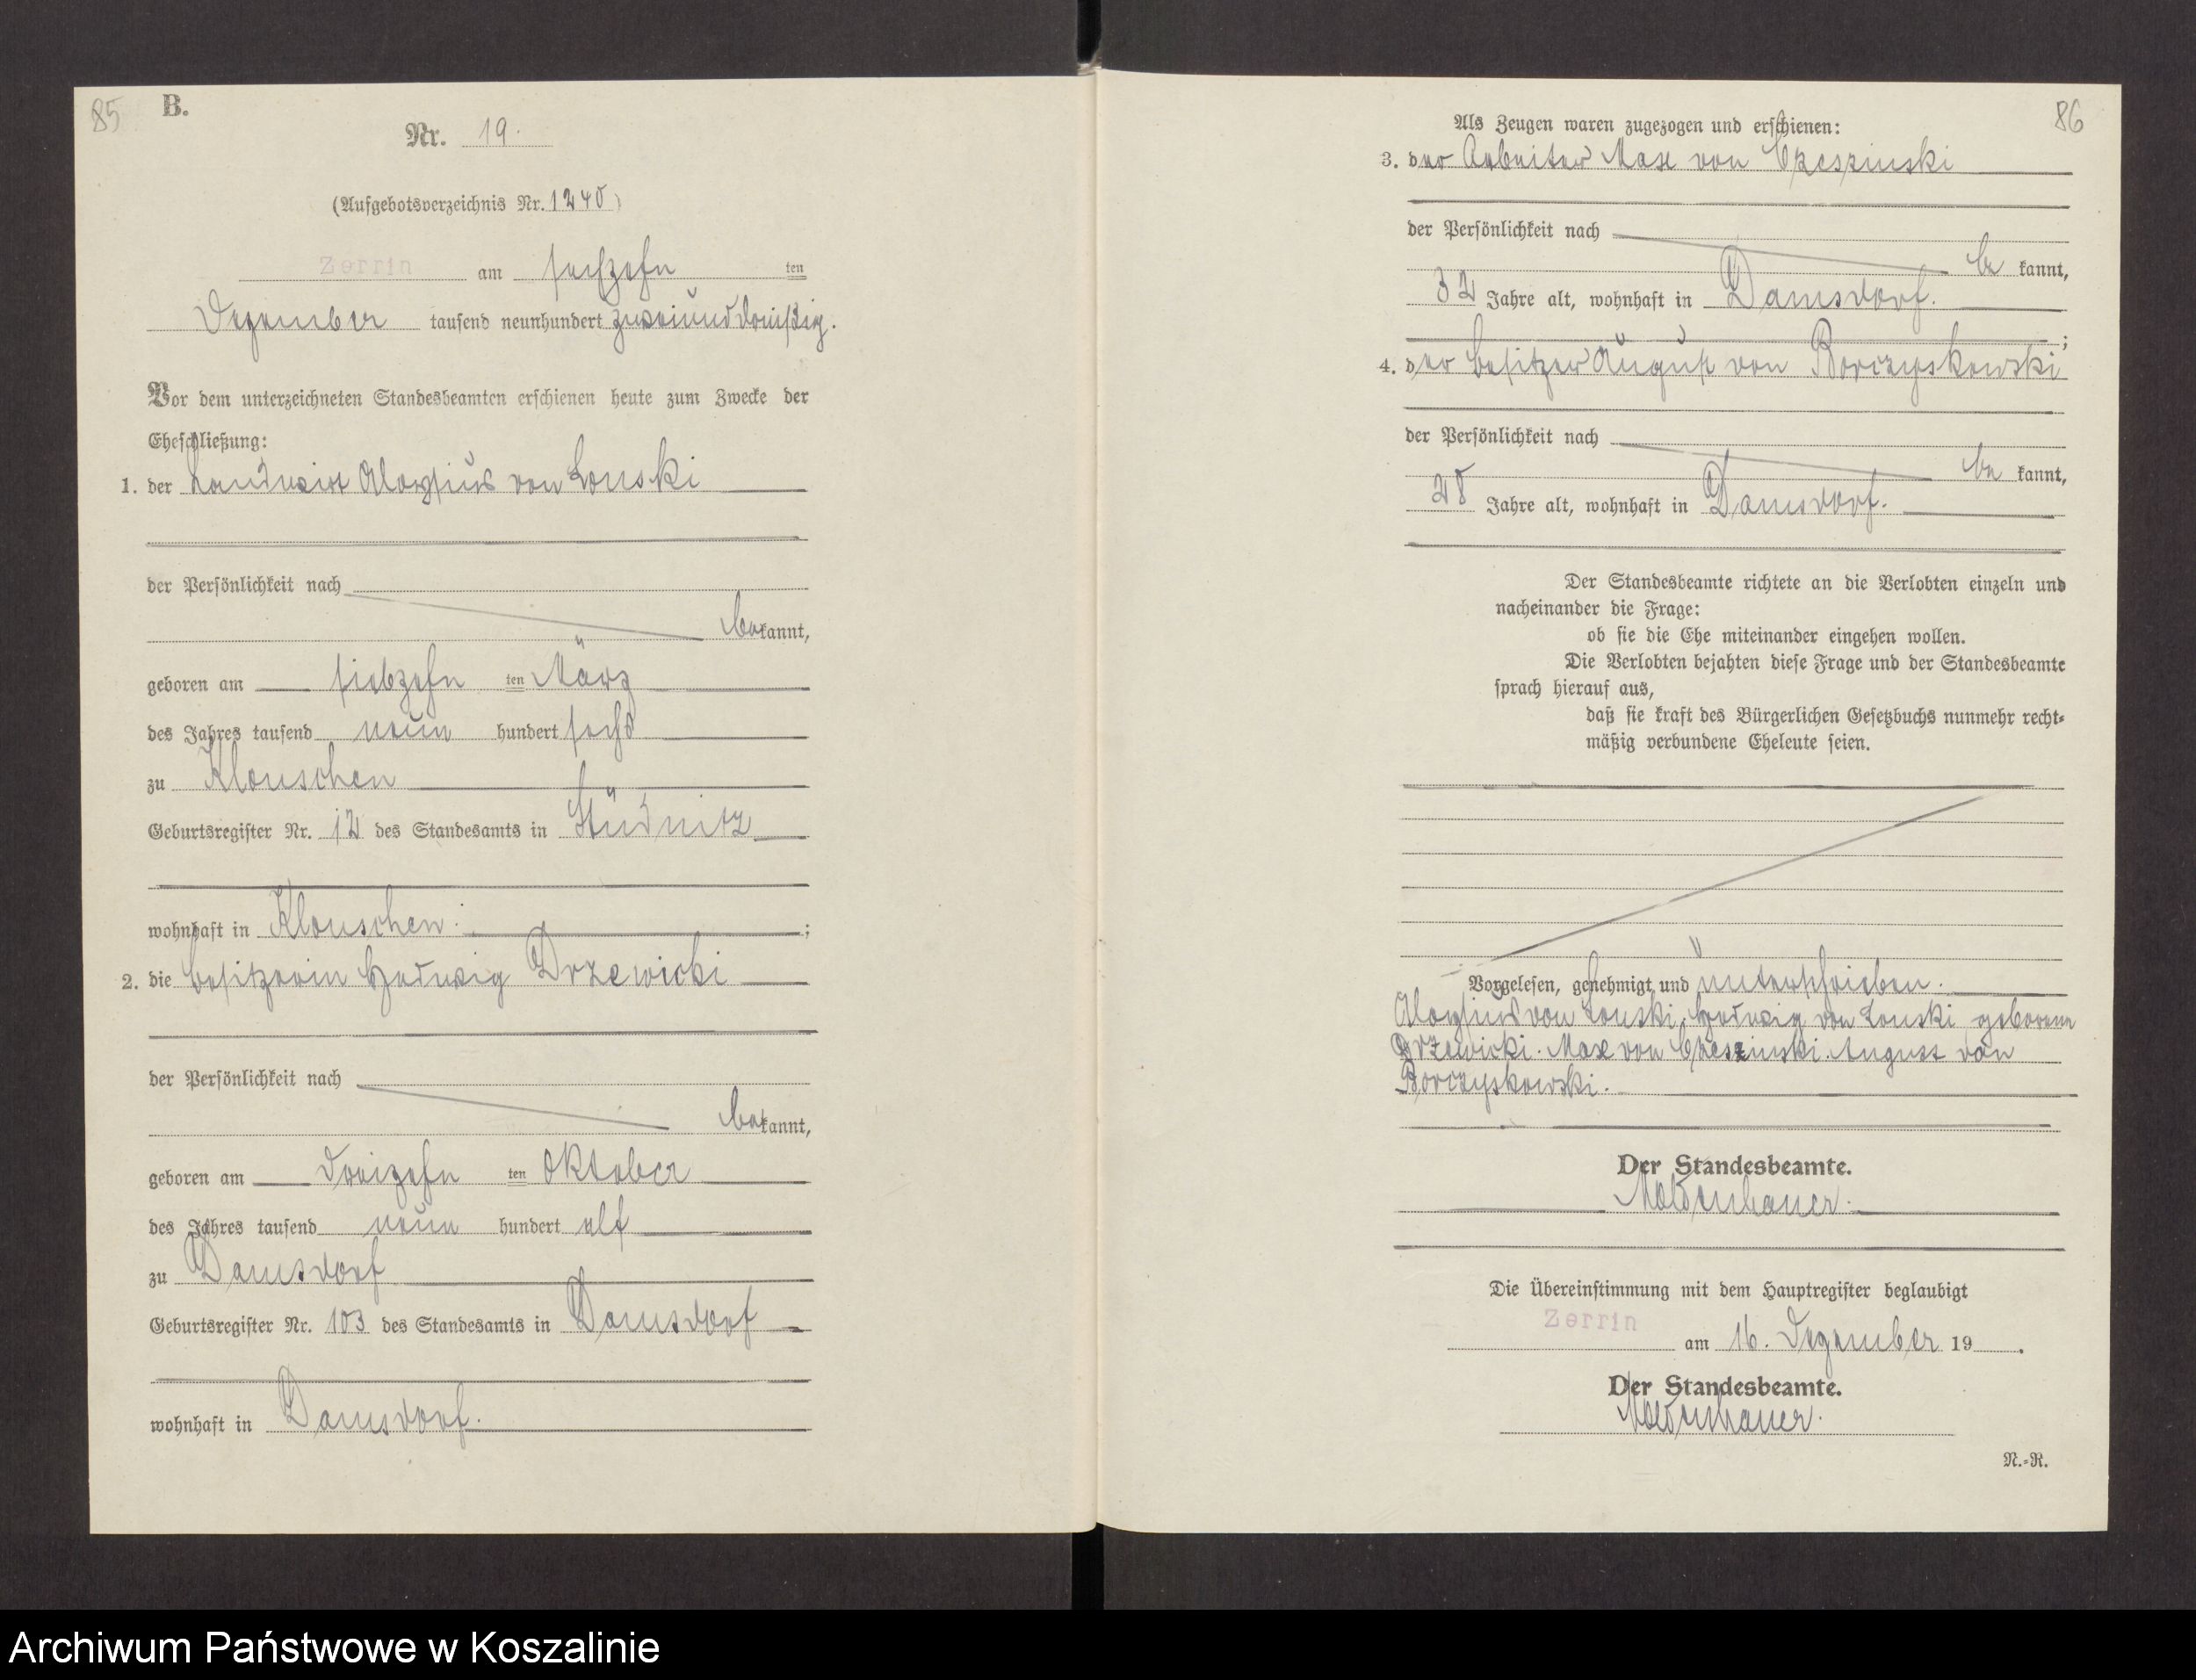 85
B.
Nr. 19.
(Aufgebotsverzeichnis Nr. 1240)
Zerrin am sechzehn ten
Dezember tausend neunhundert zweiunddreißig.
Vor dem unterzeichneten Standesbeamten erschienen heute zum Zwecke der
Eheschließung:
1. der Landwirt Aloysius von Lonski
der Persönlichkeit nach
bekannt,
geboren am siebzehn ten März
des Jahres tausend neun hundert sechs
zu Klonschen
Geburtsregister Nr. 12 des Standesamts in Stüdnitz
wohnhaft in Klonschen.;
2. die Besitzerin Hedwig Drzewicki
der Persönlichkeit nach
bekannt,
geboren am dreizehn ten Oktober
des Jahres tausend neun hundert elf
zu Damsdorf
Geburtsregister Nr. 103 des Standesamts in Damsdorf
wohnhaft in Damsdorf.
86
Als Zeugen waren zugezogen und erschienen:
3. der Arbeiter Max von
der Persönlichkeit nach
be kannt,
32 Jahre alt, wohnhaft in Damsdorf.
;
4. der Besitzer August von Borczyskowski
der Persönlichkeit nach
be kannt,
28 Jahre alt, wohnhaft in Damsdorf.
Der Standesbeamte richtete an die Verlobten einzeln und
nacheinander die Frage:
ob sie die Ehe miteinander eingehen wollen.
Die Verlobten bejahten diese Frage und der Standesbeamte
sprach hierauf aus,
daß sie kraft des Bürgerlichen Gesetzbuchs nunmehr recht-
mäßig verbundene Eheleute seien.
Vorgelesen, genehmigt und unterschrieben.
Aloysius von Lonski. Hedwig von Lonski geborene
Drzewicki. Max von August von
Borczyskowski.
Der Standesbeamte.
Moldenhauer.
Die Übereinstimmung mit dem Hauptregister beglaubigt
Zerrin am 16. Dezember 19 .
Der Standesbeamte.
Moldenhauer.
N.-R.
Archiwum Państwowe w Koszalinie